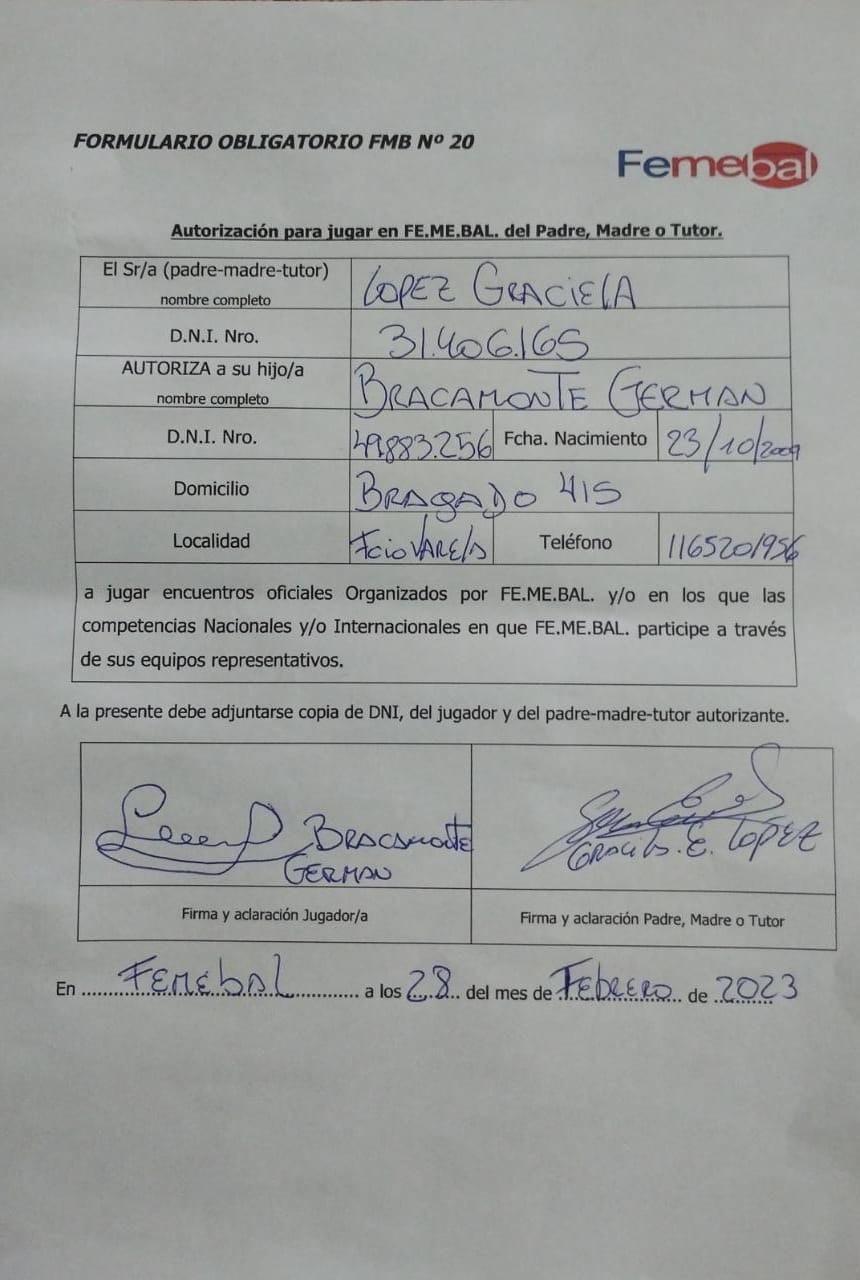 FORMULARIO OBLIGATORIO FMB Nº 20
Femebal
Autorización para jugar en FE.ME.BAL. del Padre, Madre o Tutor.
El Sr/a (padre-madre-tutor)
nombre completo
LOPEZ GRACIELA
D.N.I. Nro.
31.406.165
AUTORIZA a su hijo/a
nombre completo
BRACAMONTE GERMAN
D.N.I. Nro.
49.883.256
Fcha. Nacimiento
23/10/2009
Domicilio
BRAGADO 415
Localidad
Fcio VARELA
Teléfono
1165201956
a jugar encuentros oficiales Organizados por FE.ME.BAL. y/o en los que las
competencias Nacionales y/o Internacionales en que FE.ME.BAL. participe a través
de sus equipos representativos.
A la presente debe adjuntarse copia de DNI, del jugador y del padre-madre-tutor autorizante.
BRACAMONTE
GERMAN
GRACIELA. E. LOPEZ
Firma y aclaración Jugador/a
Firma y aclaración Padre, Madre o Tutor
En FEMEBAL a los 28 del mes de FEBRERO de 2023